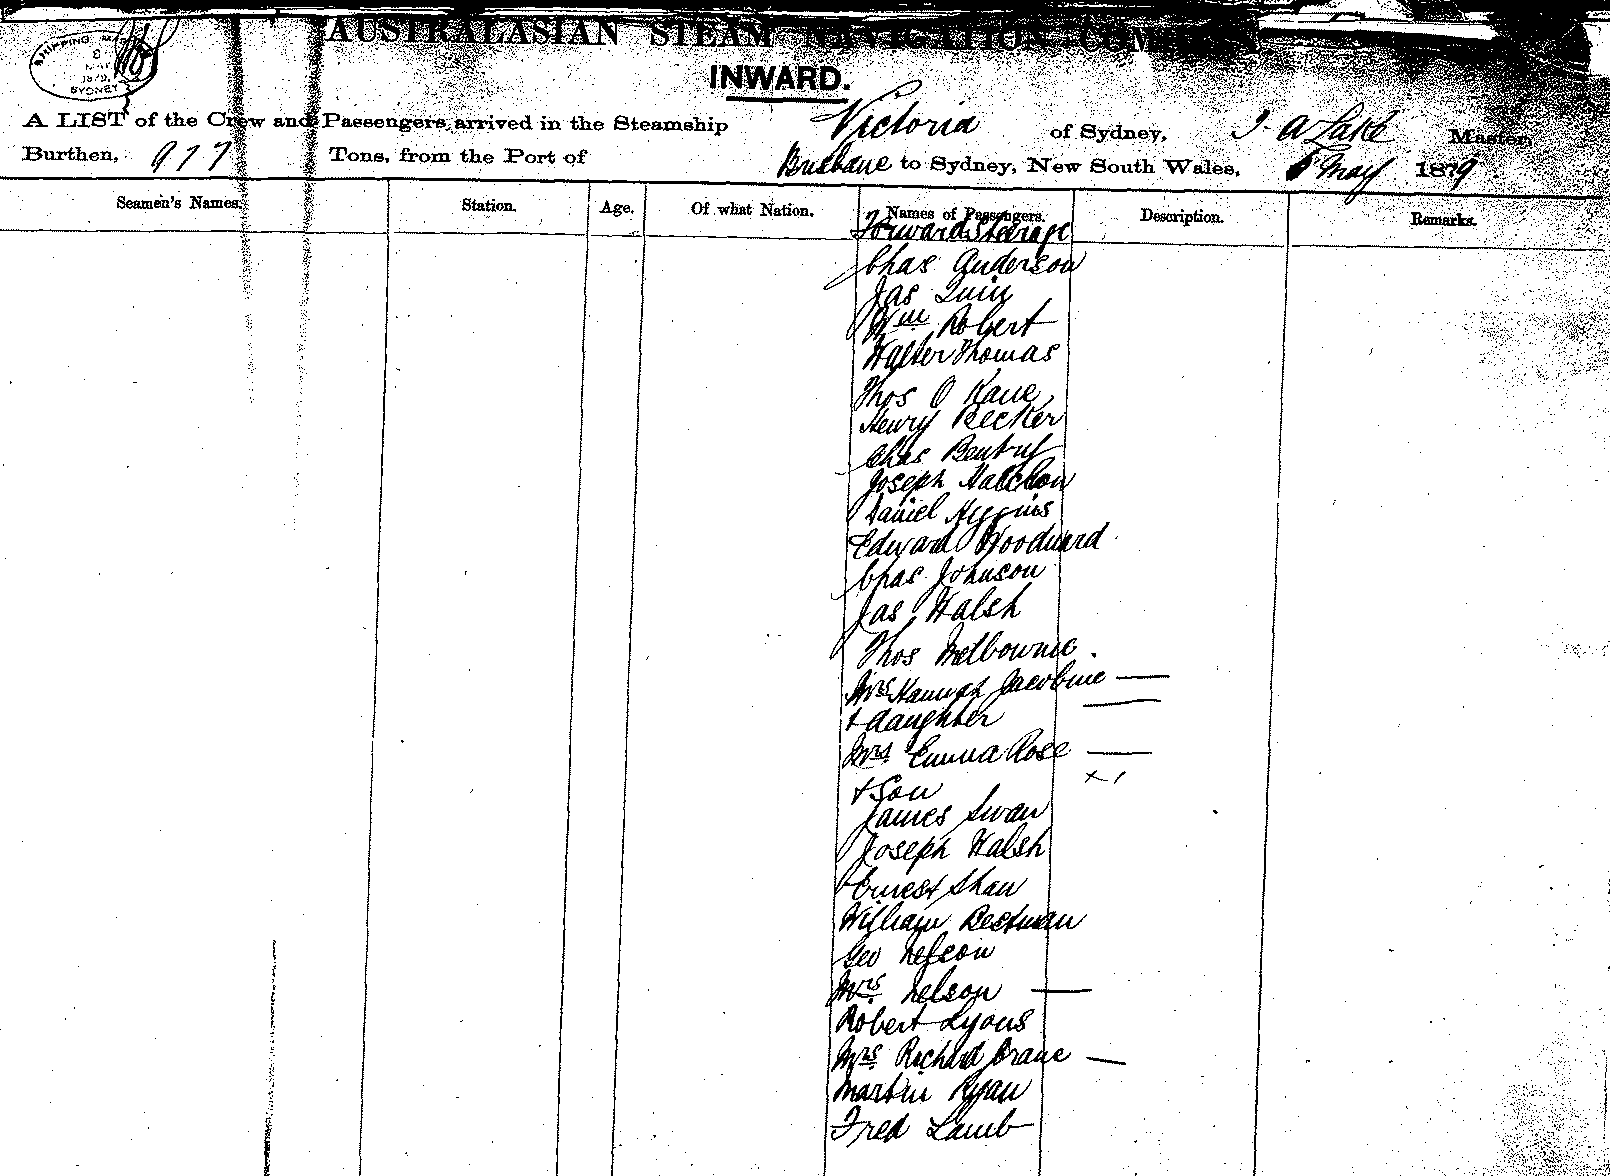 AUSTRALASIAN STEAM NAVIGATION COM
SHIPPING
8
MAY
1879
SYDNEY
INWARD.
A LIST of the Crew and Passengers, arrived in the Steamship Victoria of Sydney, J. A Lake Master,
Burthen, 977 Tons, from the Port of Brisbane to Sydney, New South Wales, May 1879
Seamen's Names. Station. Age. Of what Nation. Names of Passengers. Description. Remarks.
Forward Steerage
Chas Anderson
Jas Quin
Wm Robert
Walter Thomas
Thos O Kane
Henry Becker
Chas
Joseph
Daniel Higgins
Edward Woodward
Chas Johnson
Jas Walsh
Thos Melbourne
Mrs Hannah Jacobine —
+ daughter —
Mrs Emma Rose —
+ Son + 1
James Swan
Joseph Walsh
Ernest Shaw
William
Geo Nelson
Mrs Nelson —
Robert Lyons
Mrs Richard Crane —
Martin Ryan
Fred Lamb